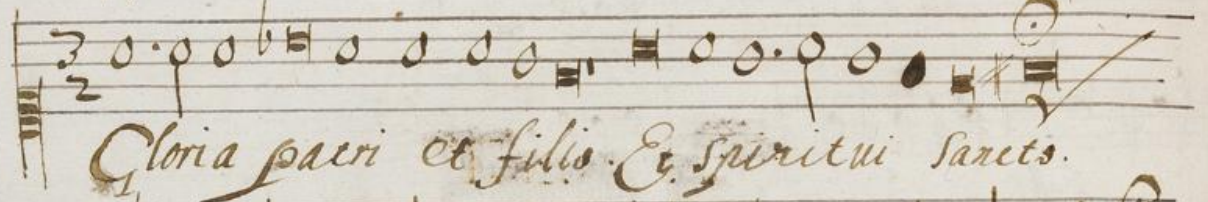 3
2
Gloria patri et filio. Et spiritui sancto.